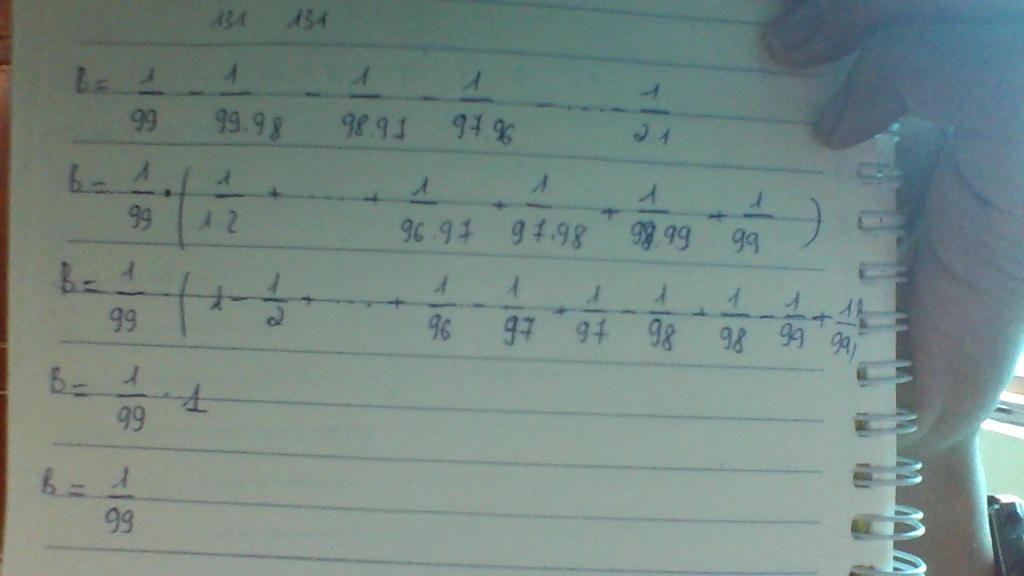 131 131
B = 1/99 - 1/99.98 - 1/98.97 - 1/97.96 - ..... - 1/21
B = 1/99 . ( 1/1.2 + ..... + 1/96.97 + 1/97.98 + 1/98.99 + 1/99 )
B = 1/99 ( 1 - 1/2 + ..... + 1/96 - 1/97 + 1/97 - 1/98 + 1/98 - 1/99 + 1/99 )
B = 1/99 . 1
B = 1/99